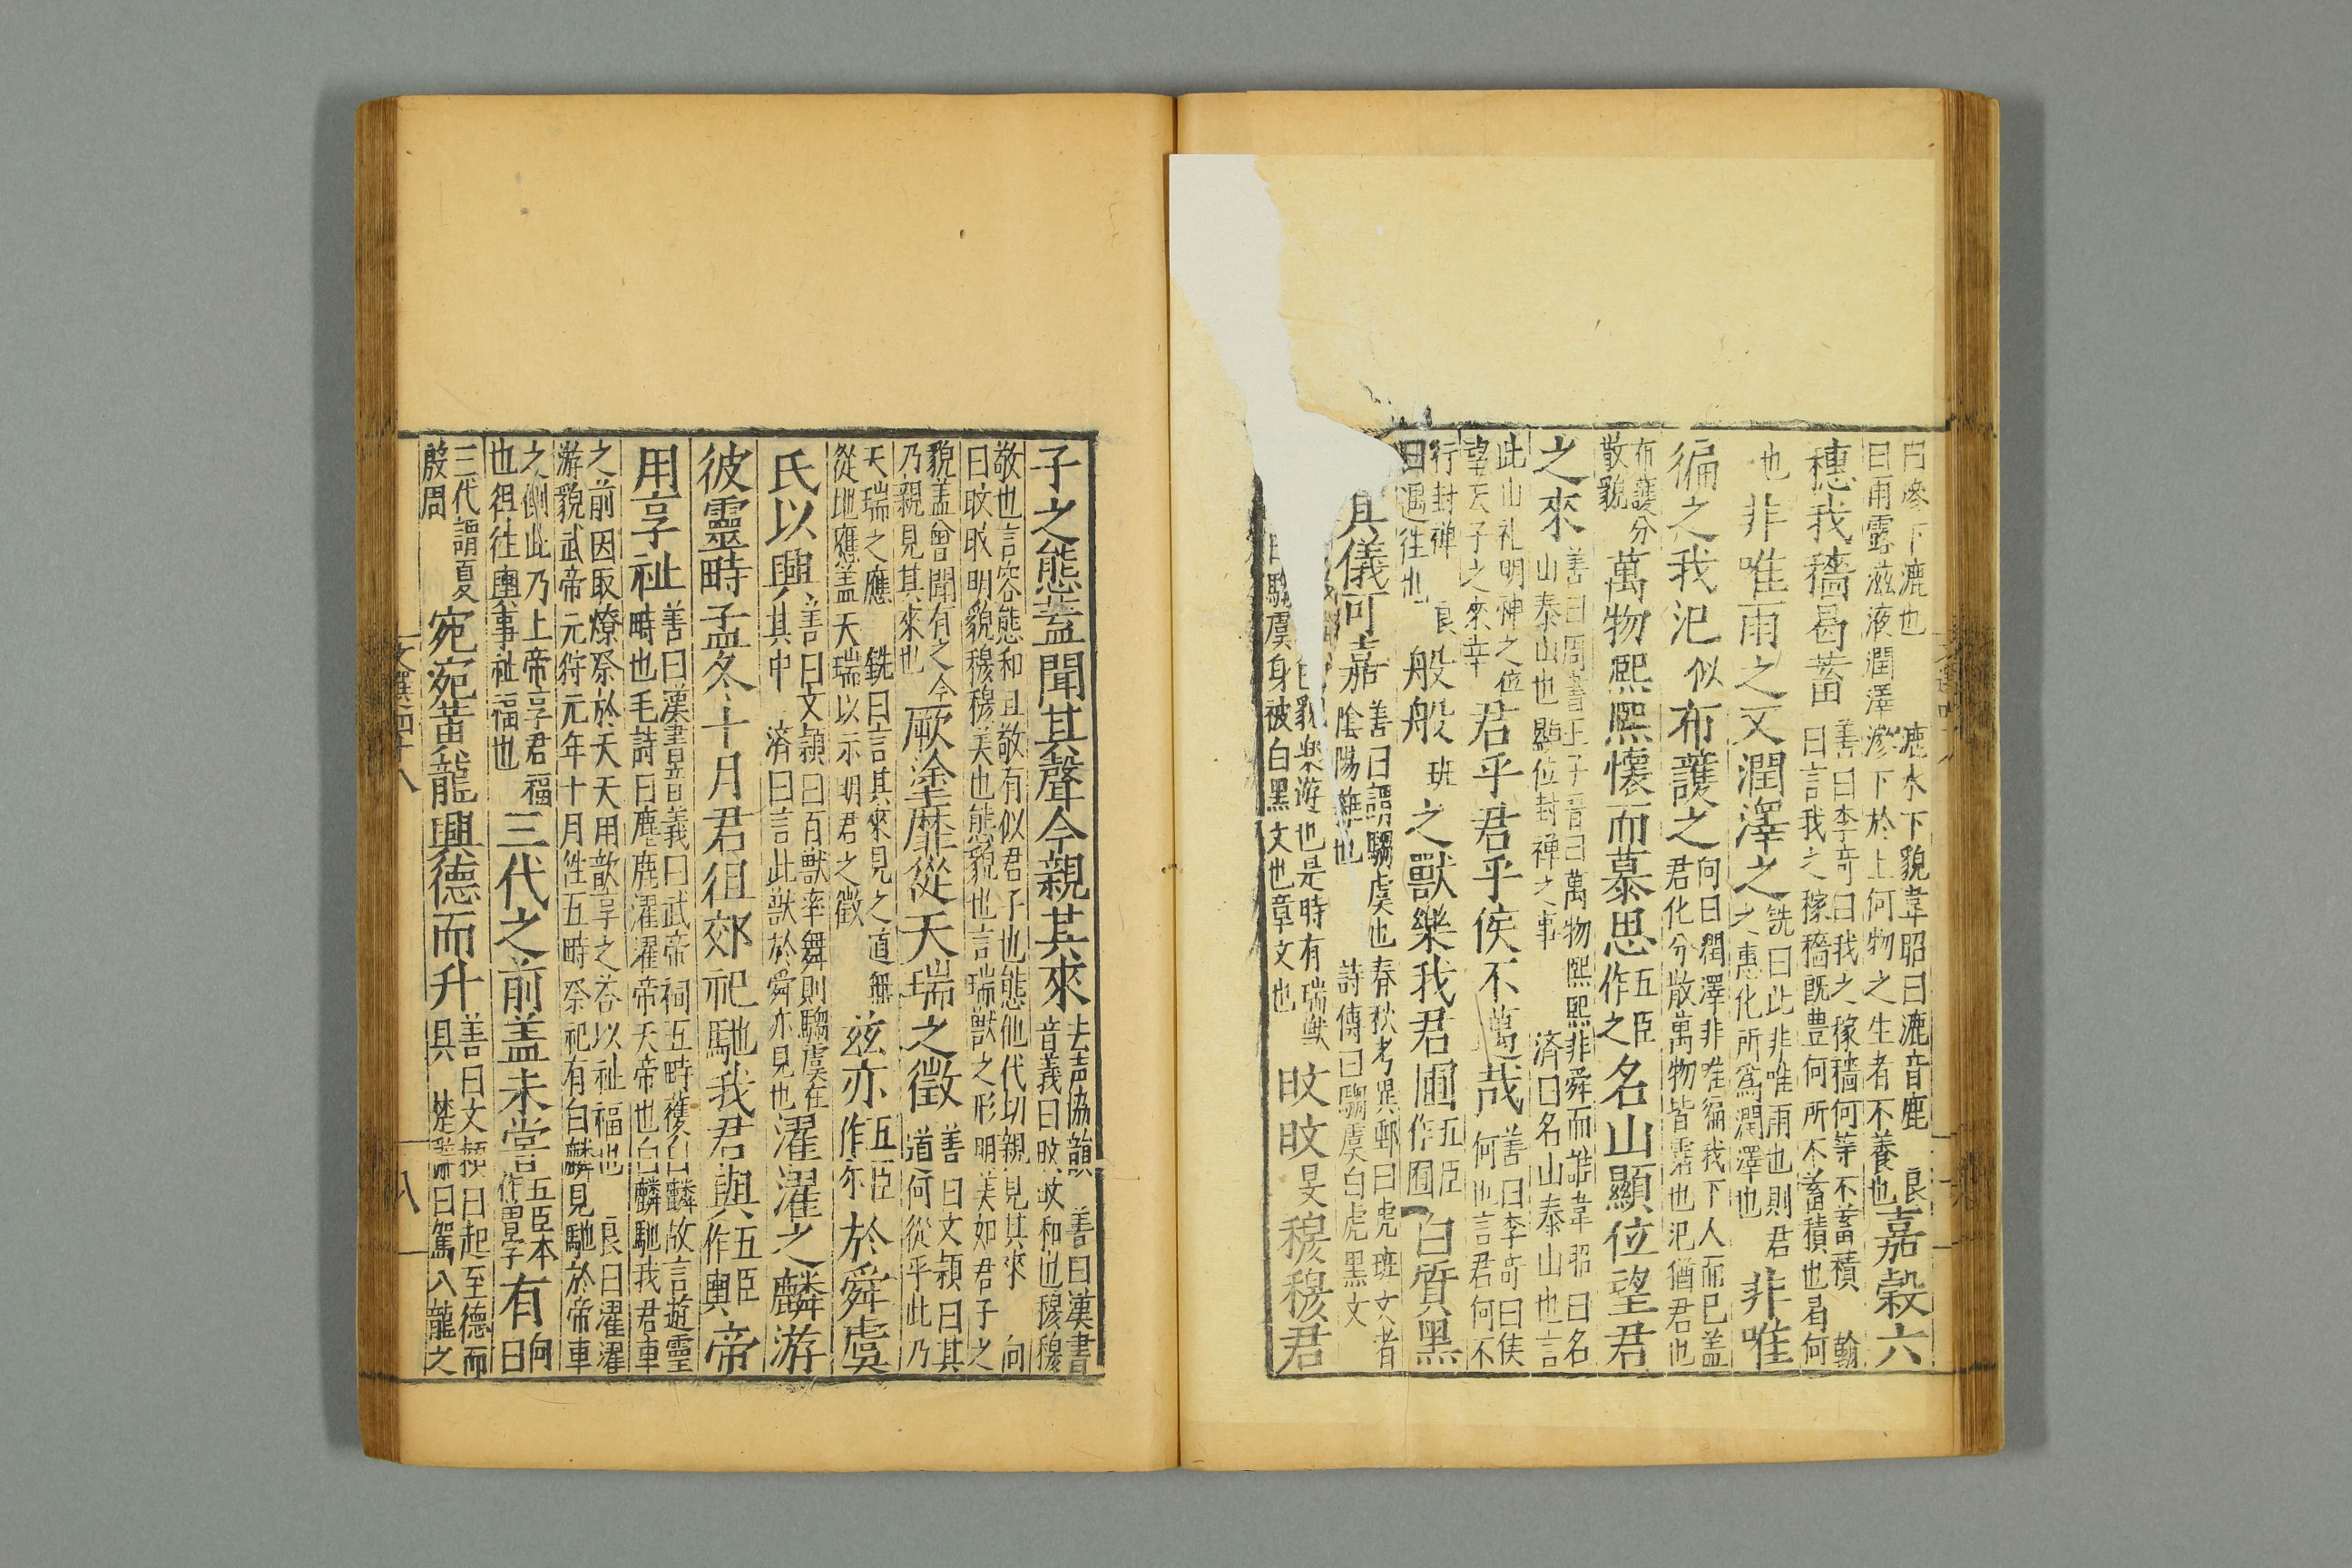 曰滲下漉也 漉水下貌韋昭曰漉音鹿 良
曰雨露滋液潤澤滲下於上何物之生者不養也
嘉穀六
穗我穡曷蓄
善曰李奇曰我之稼穡何等不蓄積 翰
曰言我之稼穡既豊何所不蓄積也曷何
也 非唯雨之又潤澤之
銑曰此非唯雨也則君
之惠化所爲潤澤也
非唯
徧之我汜 似 布護之
向曰潤澤非唯徧我下人而已盖
君化分散萬物皆霑也汜猶君也
布護分
散貌
萬物熙熙懷而慕思
五臣
作之
名山顯位望君
之來
善曰周書王子晉曰萬物熙熙非舜而誰韋昭曰名
山泰山也顯位封禅之事 濟曰名山泰山也言
此山礼明神之位
望天子之來幸
君乎君乎侯不萬哉
善曰李奇曰侯
何也言君何不
行封禅 良
曰邁往也
般般 班 之獸樂我君圃
五臣
作囿
白質黑
其儀可嘉
善曰謂騶虞也春秋考異郵曰虎班文者
陰陽雜也 詩傳曰騶虞白虎黑文
貌樂游也是時有瑞獸
騶虞身被白黑文也章文也
旼旼 旻 穆穆君
子之態蓋聞其聲今親其來
去声協韻 善曰漢書
音義曰旼旼和也穆穆
敬也言容態和且敬有似君子也態他代切親見其來 向
曰旼旼明貌穆穆美也態貌也言瑞獸之形明美如君子之
貌盖曾聞有之今
乃親見其來也
厥塗靡從天瑞之徵
善曰文潁曰其
道何從乎此乃
天瑞之應 銑曰言其來見之道無
從地應盖天瑞以示明君之徵
茲亦
五臣
作尓
於舜虞
氏以興
善曰文潁曰百獸率舞則騶虞在
其中 濟曰言此獸於舜亦見也
濯濯之麟游
彼靈畤孟冬十月君徂郊祀馳我君輿
五臣
作輿
帝
用享祉
善曰漢書音義曰武帝祠五畤獲白麟故言遊靈
畤也毛詩曰麀鹿濯濯帝天帝也白麟馳我君車
之前因取燎祭於天天用歆享之荅以祉福也 良曰濯濯
游貌武帝元狩元年十月徃五畤祭祀有白麟見馳於帝車
之側此乃上帝享君福
也徂往輿事祉福也
三代之前盖未甞
五臣本
作曽字
有
向
曰
三代謂夏
殷周
宛宛黄龍興德而升
善曰文潁曰起至德而
具 楚辭曰駕八龍之
文選四十八
八